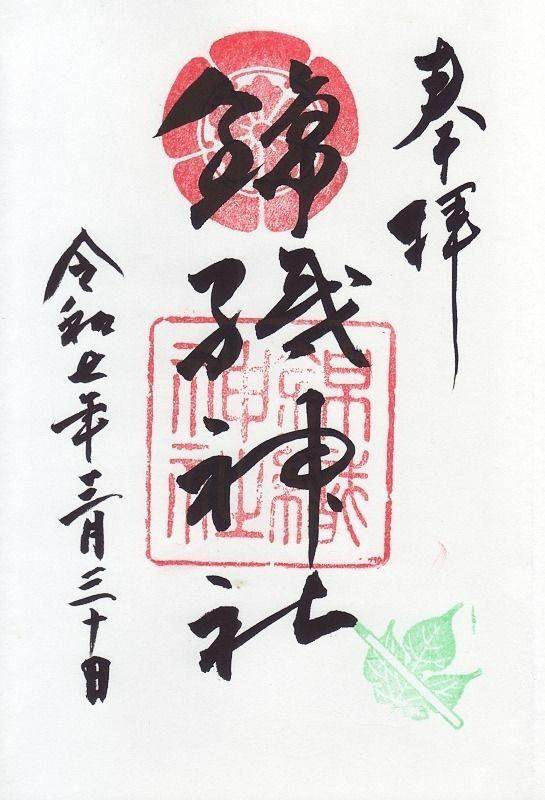 奉拝
錦織神社
錦織
神社
令和七年三月三十日